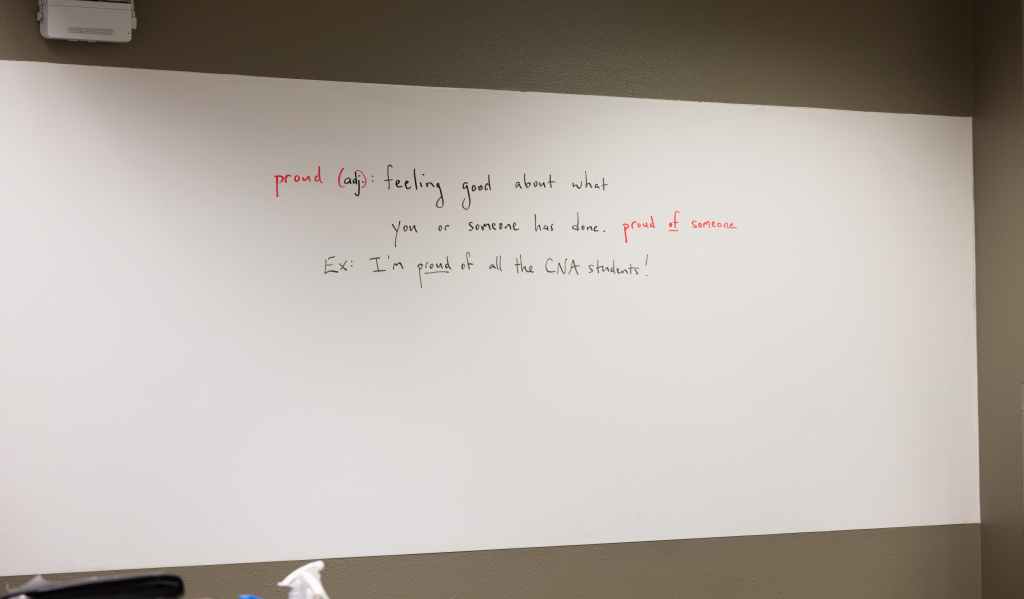 proud (adj): feeling good about what
you or someone has done. proud of someone
Ex: I'm proud of all the CNA students!